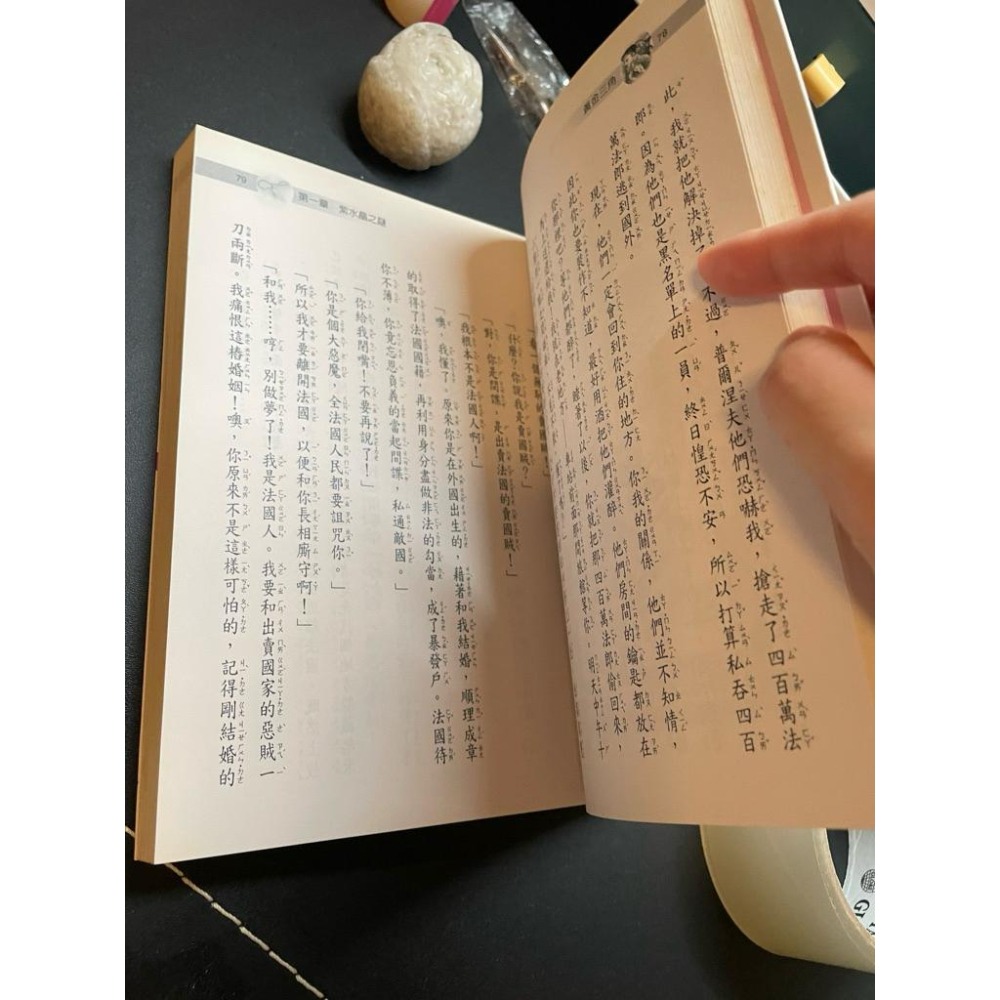 78
黃金三角
此，我就把他解決掉了
不過，普爾涅夫他們恐嚇我，搶走了四百萬法
郎。因為他們也是黑名單上的一員，終日惶恐不安，所以打算私吞四百
萬法郎逃到國外。
現在，他們一定會回到你住的地方。你我的關係，他們並不知情，
因此你也要裝作不知道，最好用酒把他們灌醉。他們房間的鑰匙都放在
等他們都醉了、睡著了以後，你就把那四百萬法郎偷回來，
79
第一章 紫水晶之謎
什麼？你說我是賣國賊？」
「對，你是間諜，是出賣法國的賣國賊！」
「我根本不是法國人啊！」
「噢，我懂了。原來你是在外國出生的，藉著和我結婚，順理成章
的取得了法國國籍，再利用身分盡做非法的勾當，成了暴發戶。法國待
你不薄，你竟忘恩負義的當起間諜，私通敵國。」
「你給我閉嘴，不要再說了！」
「你是個大惡魔，全法國人民都要詛咒你。」
「所以我才要離開法國，以便和你長相廝守啊！」
「和我……哼，別做夢了！我是法國人。我要和出賣國家的惡賊一
刀兩斷。我痛恨這樁婚姻！噢，你原來不是這樣可怕的，記得剛結婚的